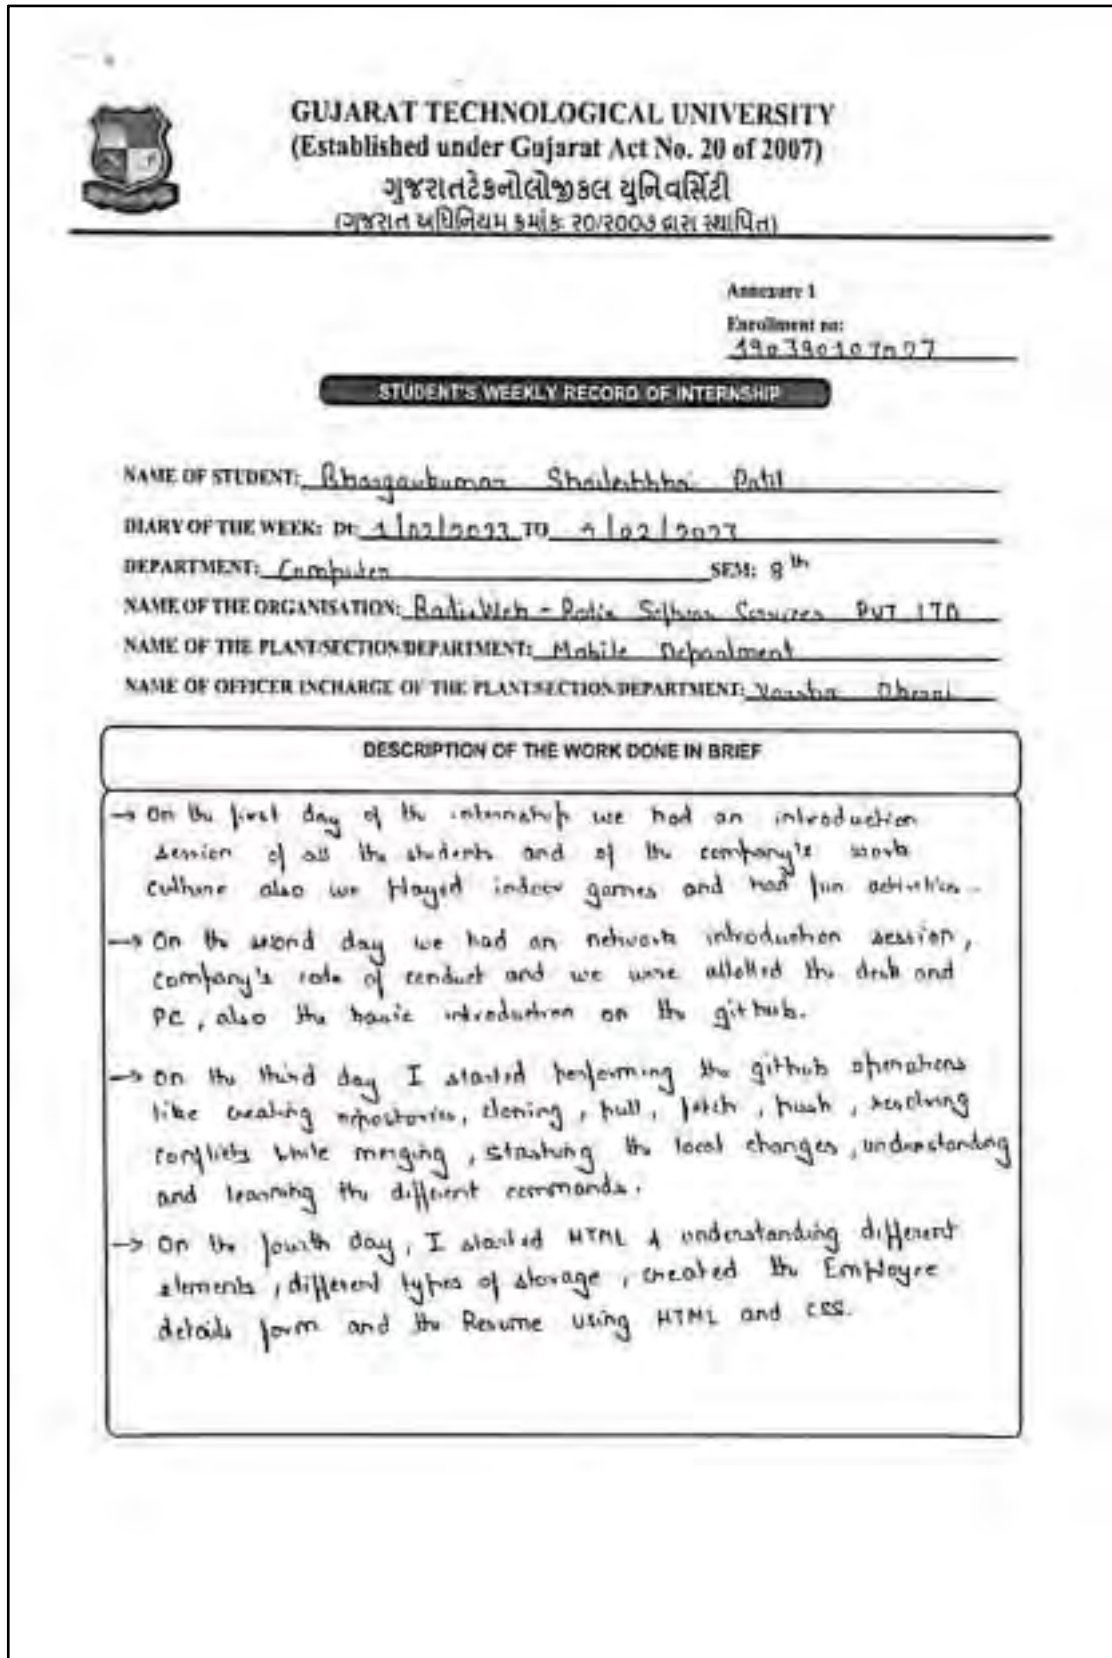 GUJARAT TECHNOLOGICAL UNIVERSITY
(Established under Gujarat Act No. 20 of 2007)
ગુજરાતટેકનોલોજીકલ યુનિવર્સિટી
(ગુજરાત અધિનિયમ ક્રમાંક: ૨૦/૨૦૦૭ દ્વારા સ્થાપિત)
Annexure 1
Enrollment no:
STUDENT'S WEEKLY RECORD OF INTERNSHIP
NAME OF STUDENT: Bhargavkumar Shaileshbhai
DIARY OF THE WEEK: Dt: 1/02/2023 TO /02/2023
DEPARTMENT: Computer SEM: 8th
NAME OF THE ORGANISATION: RadixWeb - Radix Services PVT LTD
NAME OF THE PLANT/SECTION/DEPARTMENT: Mobile Department
NAME OF OFFICER INCHARGE OF THE PLANT/SECTION/DEPARTMENT:
DESCRIPTION OF THE WORK DONE IN BRIEF
→ On the first day of the internship we had an introduction
session of all the students and of the company's work
culture also we played indoor games and had fun activities.
→ On the second day we had an network introduction session,
company's code of conduct and we were allotted the desk and
PC, also the basic introduction on the github.
→ On the third day I started performing the github operations
like creating repostories, cloning, pull, fetch, push, resolving
conflicts while merging, stashing the local changes, understanding
and learning the different commands.
→ On the fourth day, I started HTML & understanding different
elements, different types of storage, created the Employee
details form and the Resume using HTML and CSS.